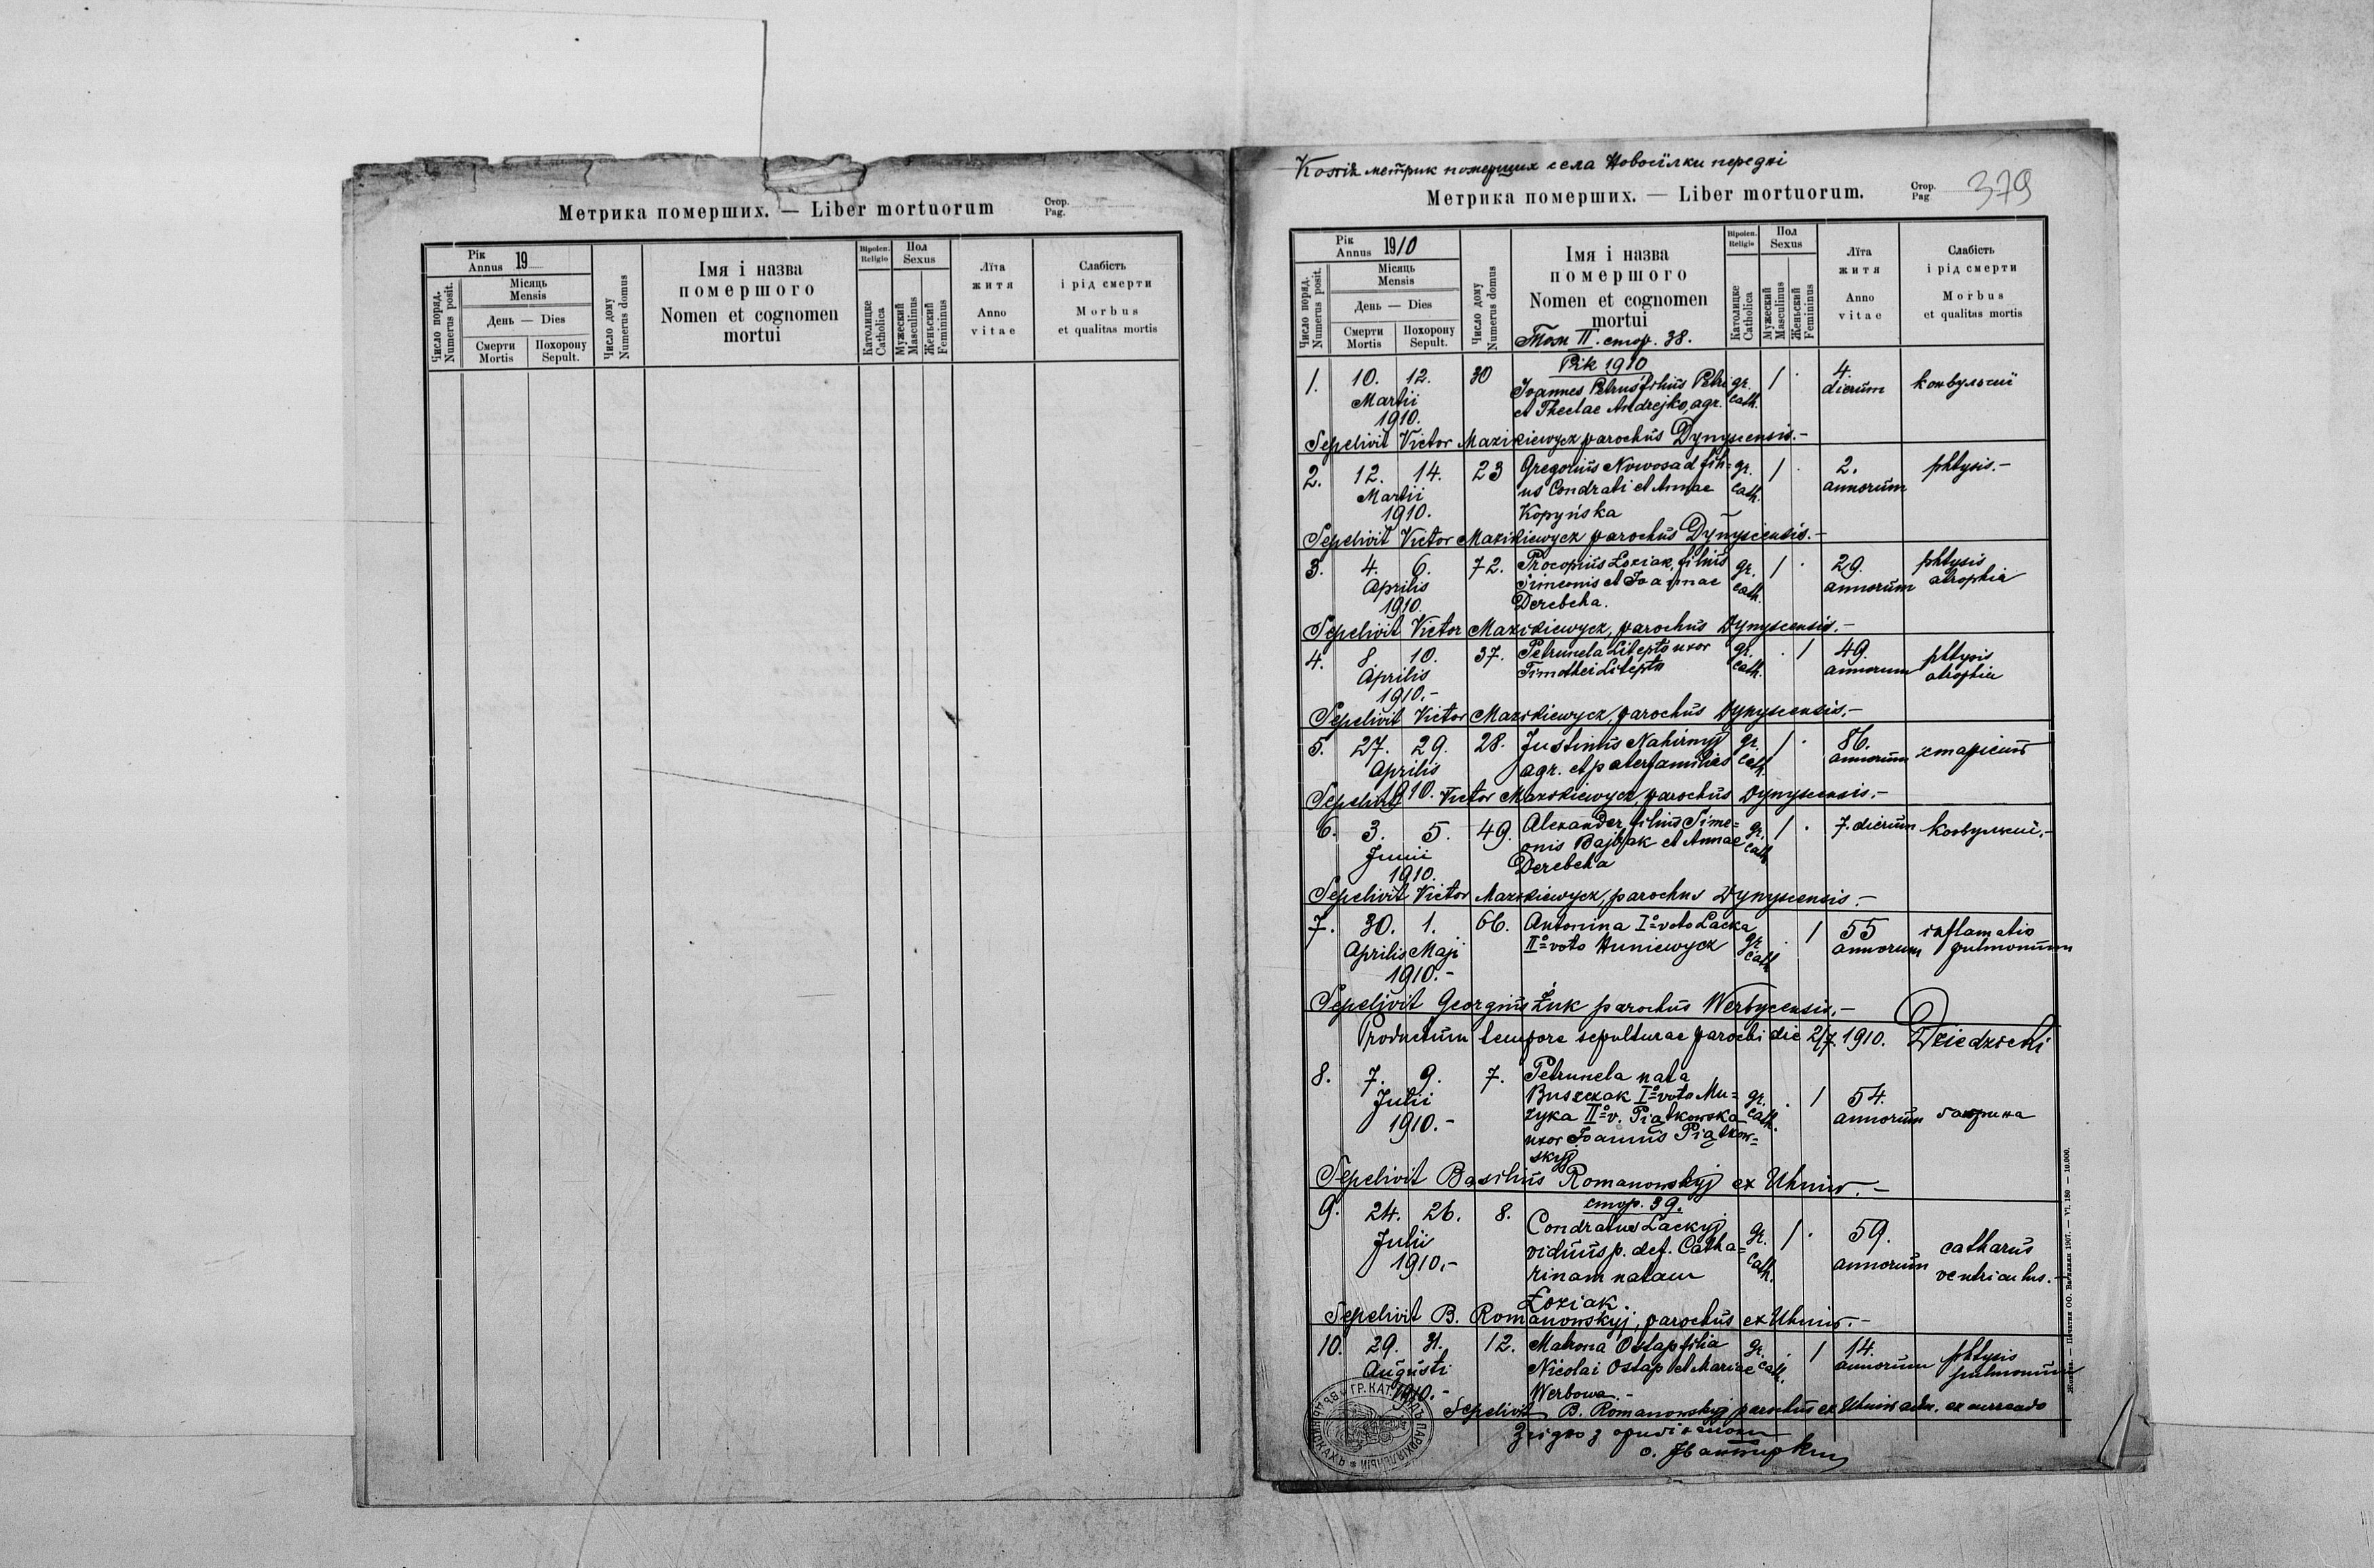 Метрика померших. — Liber mortuorum
Стор.
Pag.
Рік
Annus 19
Число поряд.
Numerus posit.
Місяць
Mensis
День — Dies
Смерти
Mortis
Похорону
Sepult.
Число дому
Numerus domus
Імя і назва
помершого
Nomen et cognomen
mortui
Віроісп.
Religio
Католицке
Catholica
Пол
Sexus
Мужеский
Masculinus
Женьский
Femininus
Лїта
житя
Anno
vitae
Слабість
і рід смерти
Morbus
et qualitas mortis
Копія метрик померших села Новосїлки передні
Метрика померших. — Liber mortuorum.
Стор.
Pag
379
Рік
Annus 1910
Число поряд.
Numerus posit.
Місяць
Mensis
День — Dies
Смерти
Mortis
Похорону
Sepult.
Число дому
Numerus domus
Імя і назва
помершого
Nomen et cognomen
mortui
Том II. стор. 38.
Віроісп.
Religio
Католицке
Catholica
Пол
Sexus
Мужеский
Masculinus
Женьский
Femininus
Лїта
житя
Anno
vitae
Слабість
і рід смерти
Morbus
et qualitas mortis
Рік 1910
1. 10. 12. 30 Joannes Petrus filius Petri gr. 1 · 4. конвульсиї
Martii et Theclae Andrejko, agr. cath. dierum
1910.
Sepelivit Victor Mazikiewycz parochus Dynyscensis.—
2. 12. 14. 23 Gregorius Nowosad fili= gr. 1 · 2. phtysis.—
Martii us Condrati et Annae cath. annorum
1910. Kopyńska
Sepelivit Victor Mazikiewycz parochus Dynyscensis.—
3. 4. 6. 72. Procopius Łoziak, filius gr. 1 · 29. phtysis
Aprilis Simeonis et Joannae cath. annorum atrophia
1910. Derecha.
Sepelivit Victor Mazikiewycz, parochus Dynyscensis.—
4. 8 10. 37. Petrunela Litepło uxor gr. · 1 49. phtysis
Aprilis Timothei Litepło cath. annorum atrophia
1910.—
Sepelivit Victor Mazikiewycz, parochus Dynyscensis.—
5. 27. 29. 28. Justinus Nahirnyj gr. 1 · 86.
Aprilis agr. et paterfamilias cath. annorum
1910.
Sepelivit Victor Mazikiewycz, parochus Dynyscensis.—
6. 3. 5. 49. Alexander filius Sime= gr. 1 · 7. dierum конвульсиї.—
Junii onis Bajbak et Annae cath.
1910. Derecha
Sepelivit Victor Mazikiewycz, parochus Dynyscensis.—
7. 30. 1. 66. Antonina I=voto Lacka gr. · 1 55 inflamatio
Aprilis Maji II=voto Huniewycz cath annorum pulmonum
1910.—
Sepelivit Georgius Żuk parochus Werbycensis.—
Productum tempore sepulturae parochi die 2/7. 1910.
8. 7. 9. 7. Petrunela nata
Julii Buszczak I=voto Mu= gr. · 1 54.
1910.— zyka II=v. Piątkowska cath. annorum
uxor Joannis Piątkow=
skyj
Sepelivit Basilius Romanowskyj ex Uhniw.—
стор. 39.
9. 24. 26. 8. Condratus Lackyj gr. 1 · 59. catharus
Julii viduus p. def. Catha= cath. annorum ventriculus.—
1910.— rinam natam
Łoziak.
Sepelivit B. Romanowskyj, parochus ex Uhniw.—
10. 29. 31. 12. Matrona Ostap filia gr. · 1 14. phtysis
Augusti Nicolai Ostap et Mariae cath. annorum pulmonum
1910.— Werbowa.—
Sepelivit B. Romanowskyj parochus ex Uhniw adm. ex currendo
Згідно з оригіналом
Жовква. — Печатня ОО. Василиян 1907. — VI. 180 — 10.000.